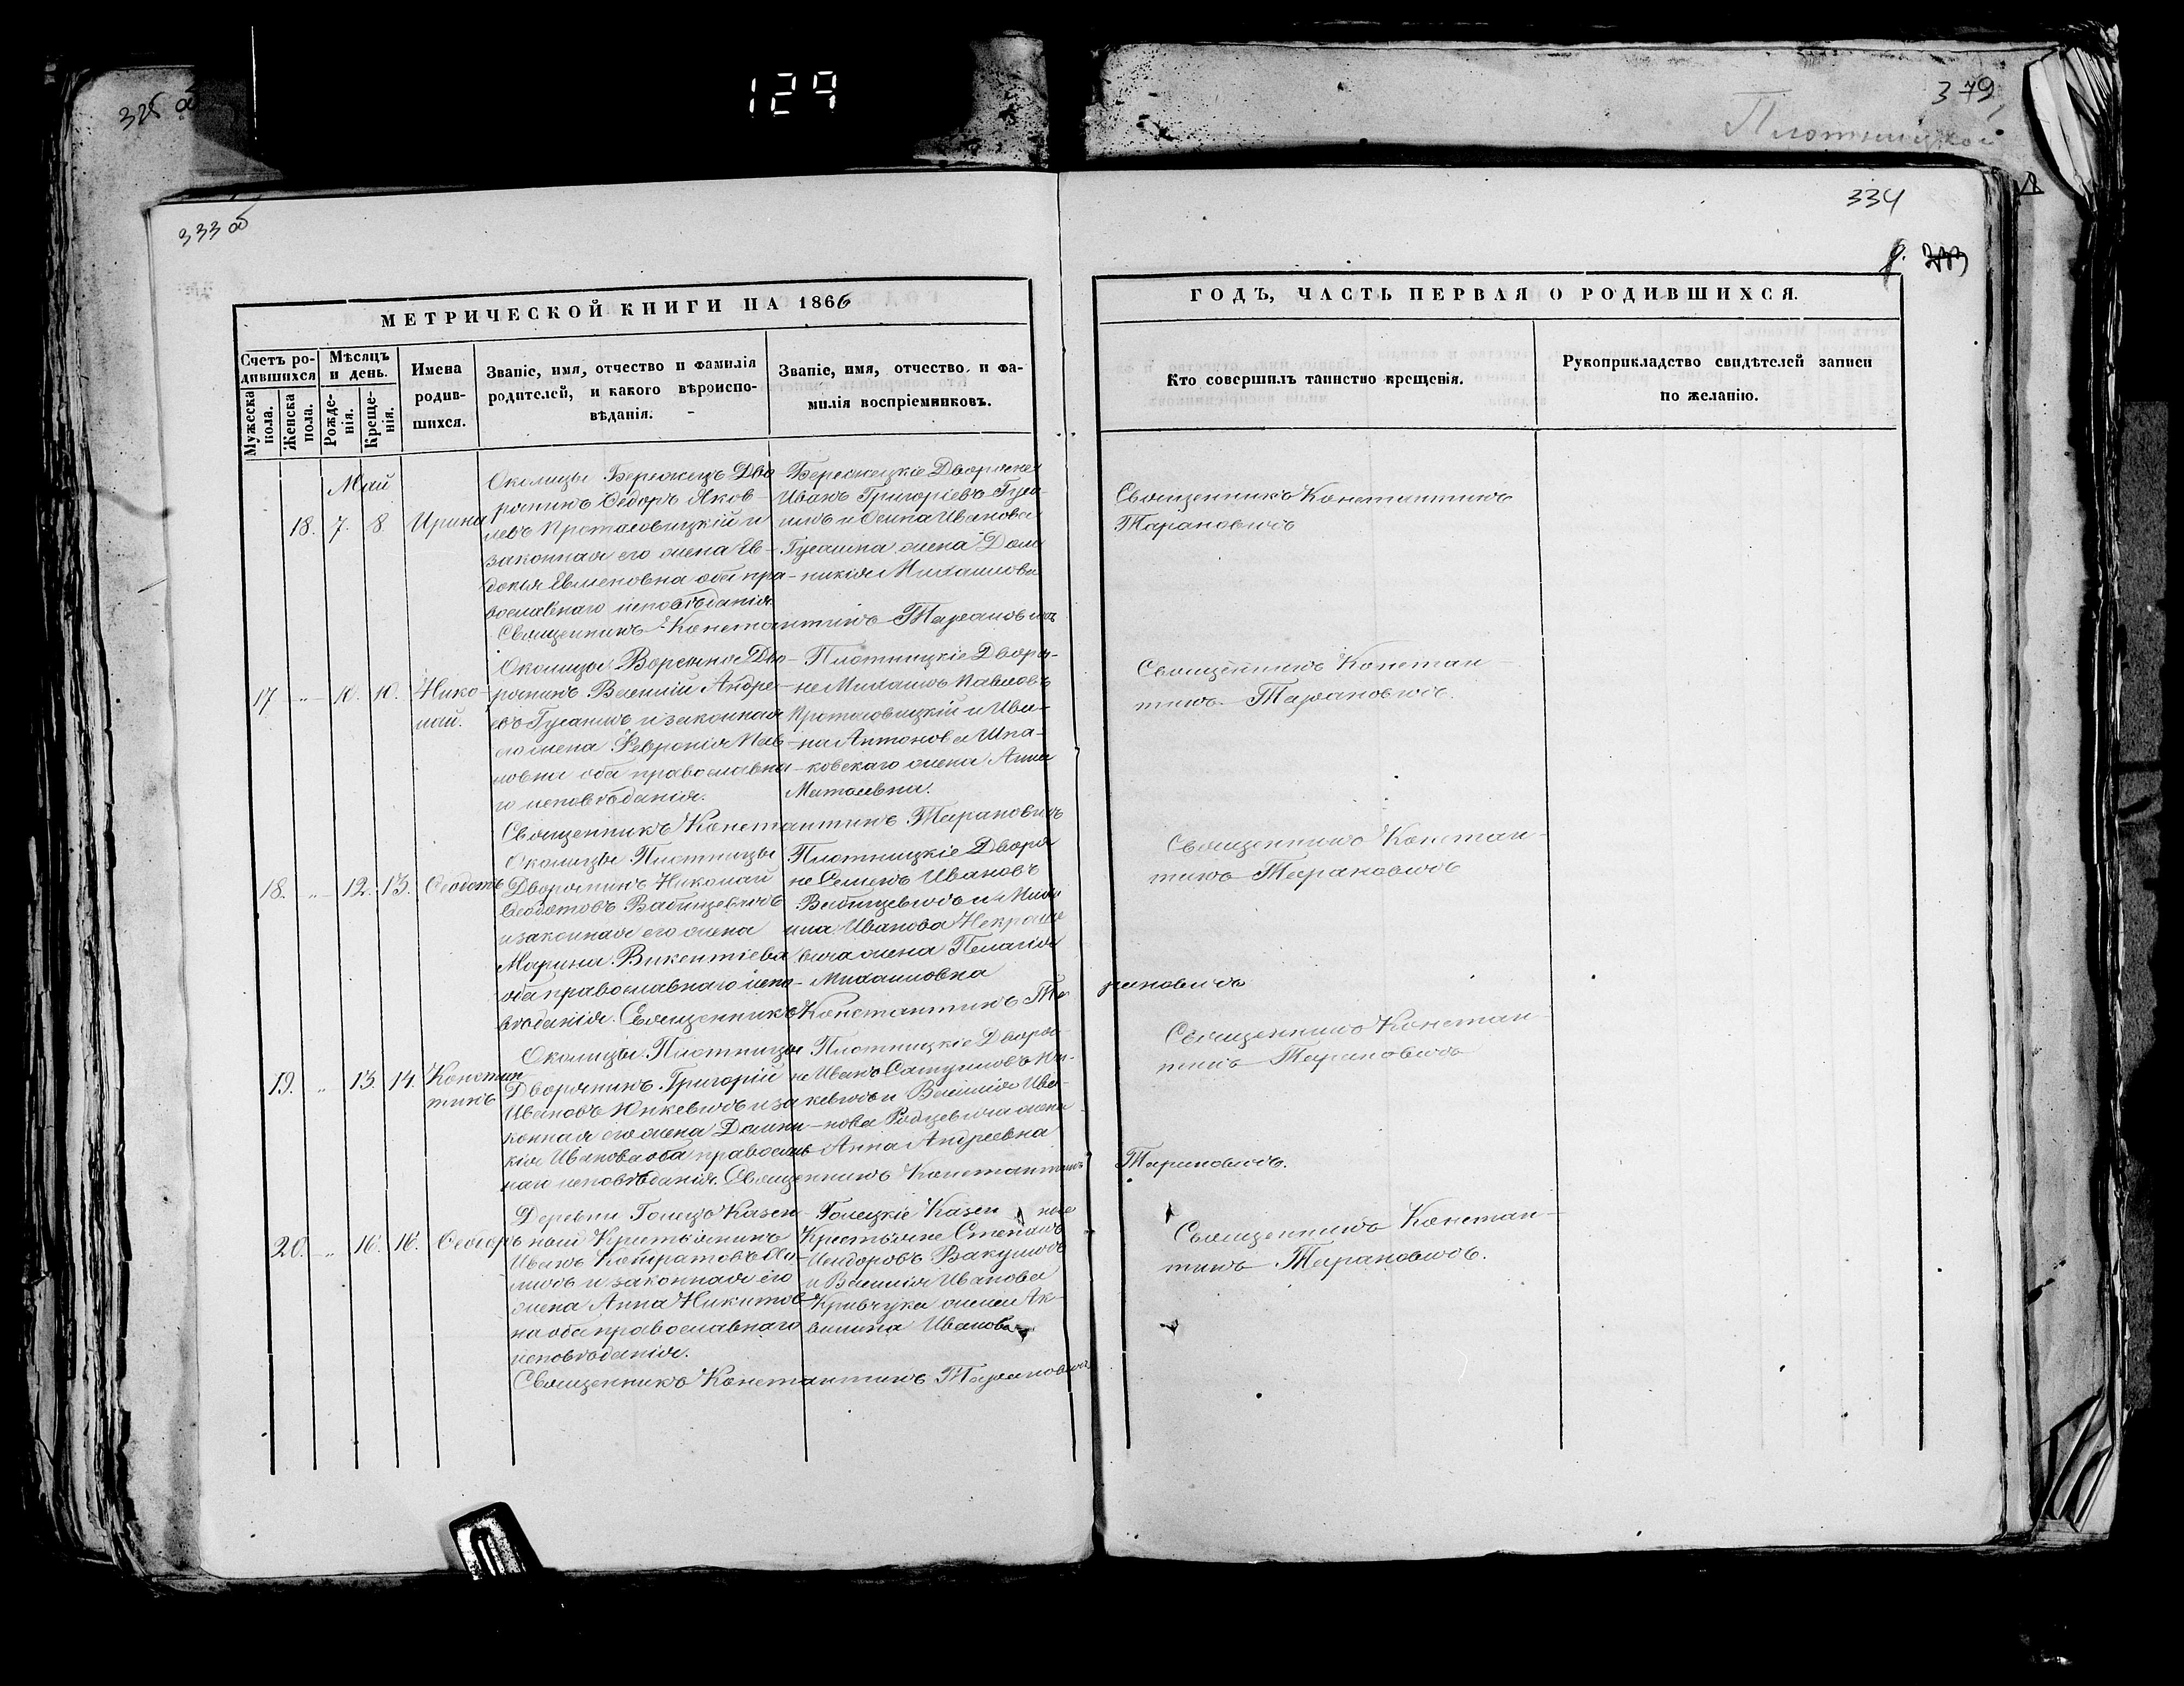 129
379
Плотницкой
333 об
334
МЕТРИЧЕСКОЙ КНИГИ НА 1866
ГОДЪ, ЧАСТЬ ПЕРВАЯ О РОДИВШИХСЯ.
Счетъ родившихся
Мужеска пола.
Женска пола.
Мѣсяцъ и день.
Рожденія.
Крещенія.
Имена родившихся.
Званіе, имя, отчество и фамилія родителей, и какого вѣроисповѣданія.
Званіе, имя, отчество, и фамилія воспріемниковъ.
Кто совершилъ таинство крещенія.
Рукоприкладство свидѣтелей записи по желанію.
Май
18. 7. 8 Ирина
Околицы Бережецъ Дво-
рянинъ Ѳедоръ Яков-
левъ Протасовицкій и
законная его жена Ев-
докія Евменовна оба пра-
вославнаго исповѣданія.
Бережецкіе Дворяне
Иванъ Григоріевъ
и Осипа Иванова
жена Дом
никія Михаилова
Священникъ Константинъ Тарановичъ
Священникъ Константинъ
Тарановичъ
17 „ 10. 10. Нико-
лай.
Околицы Дво-
рянинъ Василій Андре-
евъ и законная
его жена Февронія Пав-
ловна оба православна-
го исповѣданія.
Плотницкіе Дворя-
не Михаилъ Павловъ
Протасовицкій и Ива-
на Антонова Шпа-
ковскаго жена Анна
Священникъ Константинъ Тарановичъ
Священникъ Констан-
тинъ Тарановичъ.
18. „ 12. 13. Ѳеодотъ
Околицы Плотницы
Дворянинъ Николай
Ѳеодотовъ Вабищевичъ
и законная его жена
Марина Викентіева
оба православнаго испо-
вѣданія. Священникъ Константинъ Та
рановичъ
Плотницкіе Дворя
не Семенъ Ивановъ
Вабищевичъ и
Иванова Некраше
вича жена Пелагія
Михаиловна
Священникъ Констан-
тинъ Тарановичъ
19. „ 13. 14. Констан
тинъ
Околицы Плотницы
Дворянинъ Григорій
Ивановъ Юнкевичъ и за
конная его жена Домни-
кія Иванова оба православ
наго исповѣданія. Священникъ Константинъ
Тарановичъ.
Плотницкіе Дворя-
не Иванъ Юн-
кевичъ и Василія Ива-
нова Родцевича жена
Анна Андреевна
Священникъ Констан-
тинъ Тарановичъ
20. „ 16. 16. Ѳеодоръ
Деревни Голецъ Казен-
ный Крестьянинъ
Иванъ
и законная его
жена Анна Никитов-
на оба православнаго
исповѣданія.
Голецкіе Казен ные
Крестьяне Степанъ
Исидоровъ Вакуличъ
и Василія Иванова
Кривчука жена Ак-
вилина Иванова
Священникъ Константинъ Тарановичъ
Священникъ Констан-
тинъ Тарановичъ.